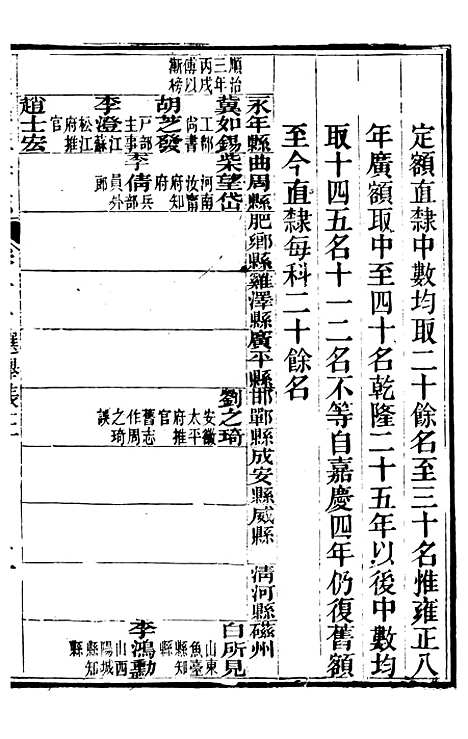 定額直隸中數均取二十餘名至三十名惟雍正八
年廣額取中至四十名乾隆二十五年以後中數均
取十四五名十一二名不等自嘉慶四年仍復舊額
至今直隸每科二十餘名
順治
三年
丙戌
傅以
漸榜
永年縣曲周縣肥鄉縣雞澤縣廣平縣邯鄲縣成安縣威縣清河縣磁州
冀如錫
工部
尚書
胡芝發
戶部
主事
李澄
江蘇
松江
府推
官
趙士宏
柴望岱
河南
汝甯
府知
府
李倩
兵部
員外
郎
劉之琦
安徽
太平
府推
舊志
作周
之琦
誤
白所見
山東
魚臺
縣知
縣
李鴻勳
山西
陽城
縣知
縣
選舉表二